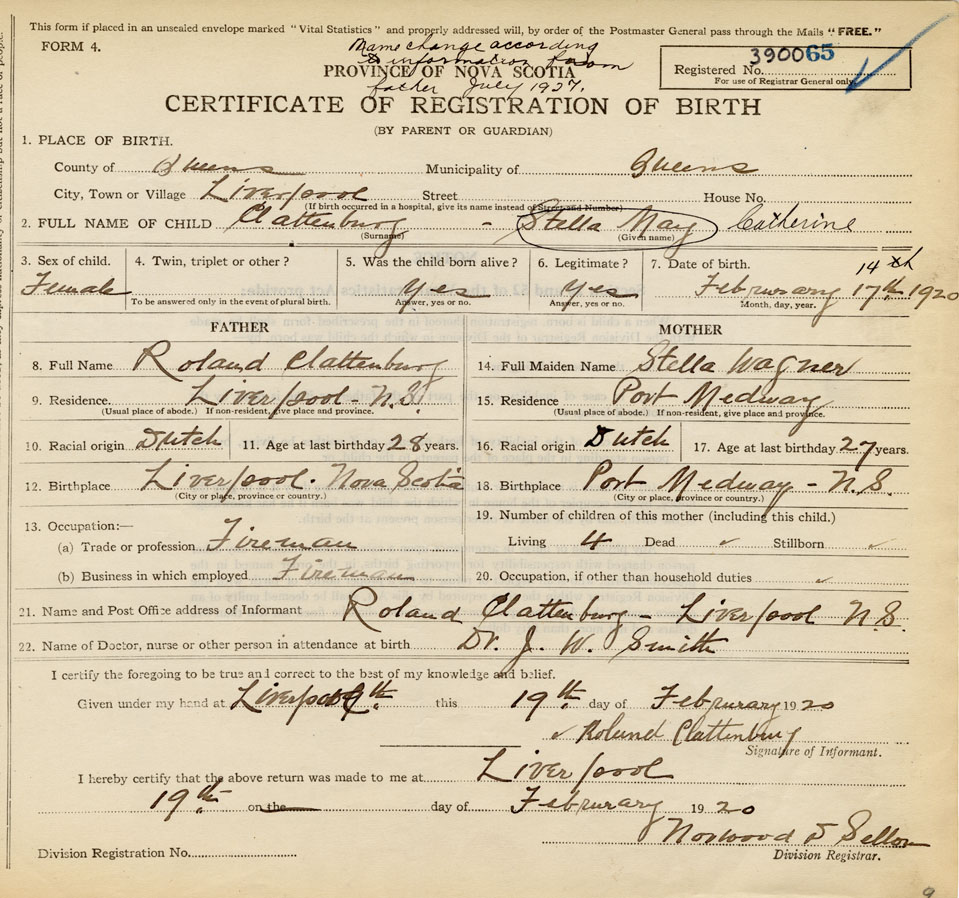 This form if placed in an unsealed envelope marked "Vital Statistics" and properly addressed will, by order of the Postmaster General pass through the Mails "FREE."
FORM 4.
Name change according
to information from
PROVINCE OF NOVA SCOTIA
father July 1927.
390065
Registered No.
For use of Registrar General only
CERTIFICATE OF REGISTRATION OF BIRTH
(BY PARENT OR GUARDIAN)
1. PLACE OF BIRTH.
County of Queens Municipality of Queens
City, Town or Village Liverpool Street House No.
(If birth occurred in a hospital, give its name instead of Street and Number)
2. FULL NAME OF CHILD Clattenburg - Stella May Catherine
(Surname) (Given name)
3. Sex of child. 4. Twin, triplet or other? 5. Was the child born alive? 6. Legitimate? 7. Date of birth. 14th
Female Yes Yes Februrary 17th 1920
To be answered only in the event of plural birth. Answer, yes or no. Answer, yes or no. Month, day, year.
FATHER MOTHER
8. Full Name Roland Clattenburg 14. Full Maiden Name Stella Wagner
9. Residence Liverpool - N.S. 15. Residence Port Medway
(Usual place of abode.) If non-resident, give place and province. (Usual place of abode.) If non-resident, give place and province.
10. Racial origin Dutch 11. Age at last birthday 28 years. 16. Racial origin Dutch 17. Age at last birthday 27 years.
12. Birthplace Liverpool. Nova Scotia 18. Birthplace Port Medway - N.S.
(City or place, province or country.) (City or place, province or country.)
13. Occupation:— 19. Number of children of this mother (including this child.)
(a) Trade or profession Fireman Living 4 Dead ✓ Stillborn ✓
(b) Business in which employed Fireman 20. Occupation, if other than household duties ✓
21. Name and Post Office address of Informant Roland Clattenburg - Liverpool N.S.
22. Name of Doctor, nurse or other person in attendance at birth Dr. J. W. Smith
I certify the foregoing to be true and correct to the best of my knowledge and belief.
Given under my hand at Liverpool this 19th day of Februrary 1920
✓ Roland Clattenburg
Signature of Informant.
I hereby certify that the above return was made to me at Liverpool
19th on the day of Februrary 1920
Norwood
Division Registrar.
Division Registration No.
9